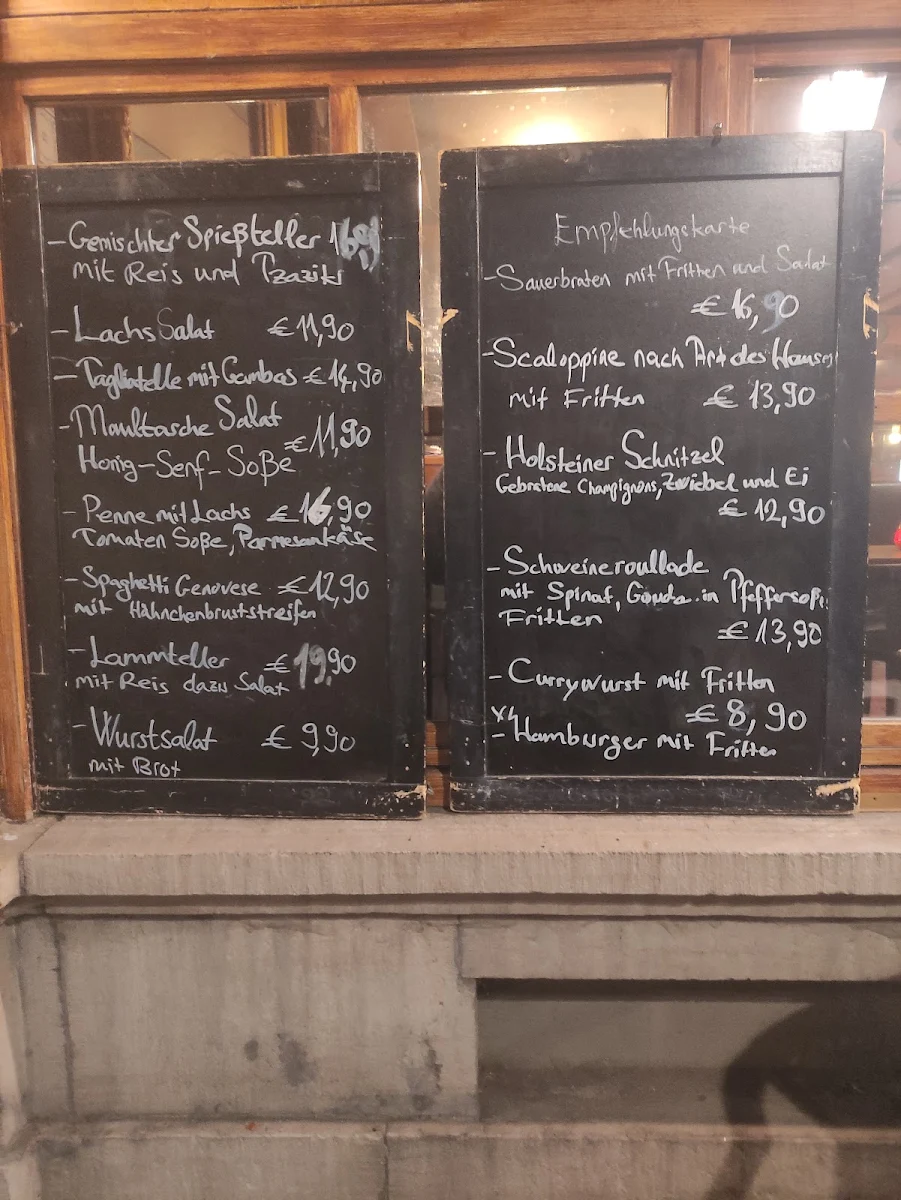 - Gemischter Spießteller
mit Reis und Tzaziki
- Lachs Salat € 11,90
- Tagliatelle mit Gambas € 14,90
- Maultasche Salat
€ 11,90
Honig-Senf-Soße
- Penne mit Lachs € 16,90
Tomaten Soße, Parmesankäse
- Spaghetti Genovese € 12,90
mit Hähnchenbruststreifen
- Lammteller € 19,90
mit Reis dazu Salat
- Wurstsalat € 9,90
mit Brot
Empfehlungskarte
- Sauerbraten mit Fritten und Salat
€ 16,90
- Scaloppine nach Art des Hauses
mit Fritten € 13,90
- Holsteiner Schnitzel
Gebratene Champignons, Zwiebel und Ei
€ 12,90
- Schweineroullade
mit Spinat, Gouda in
Fritten
€ 13,90
- Currywurst mit Fritten
€ 8,90
- Hamburger mit Fritten